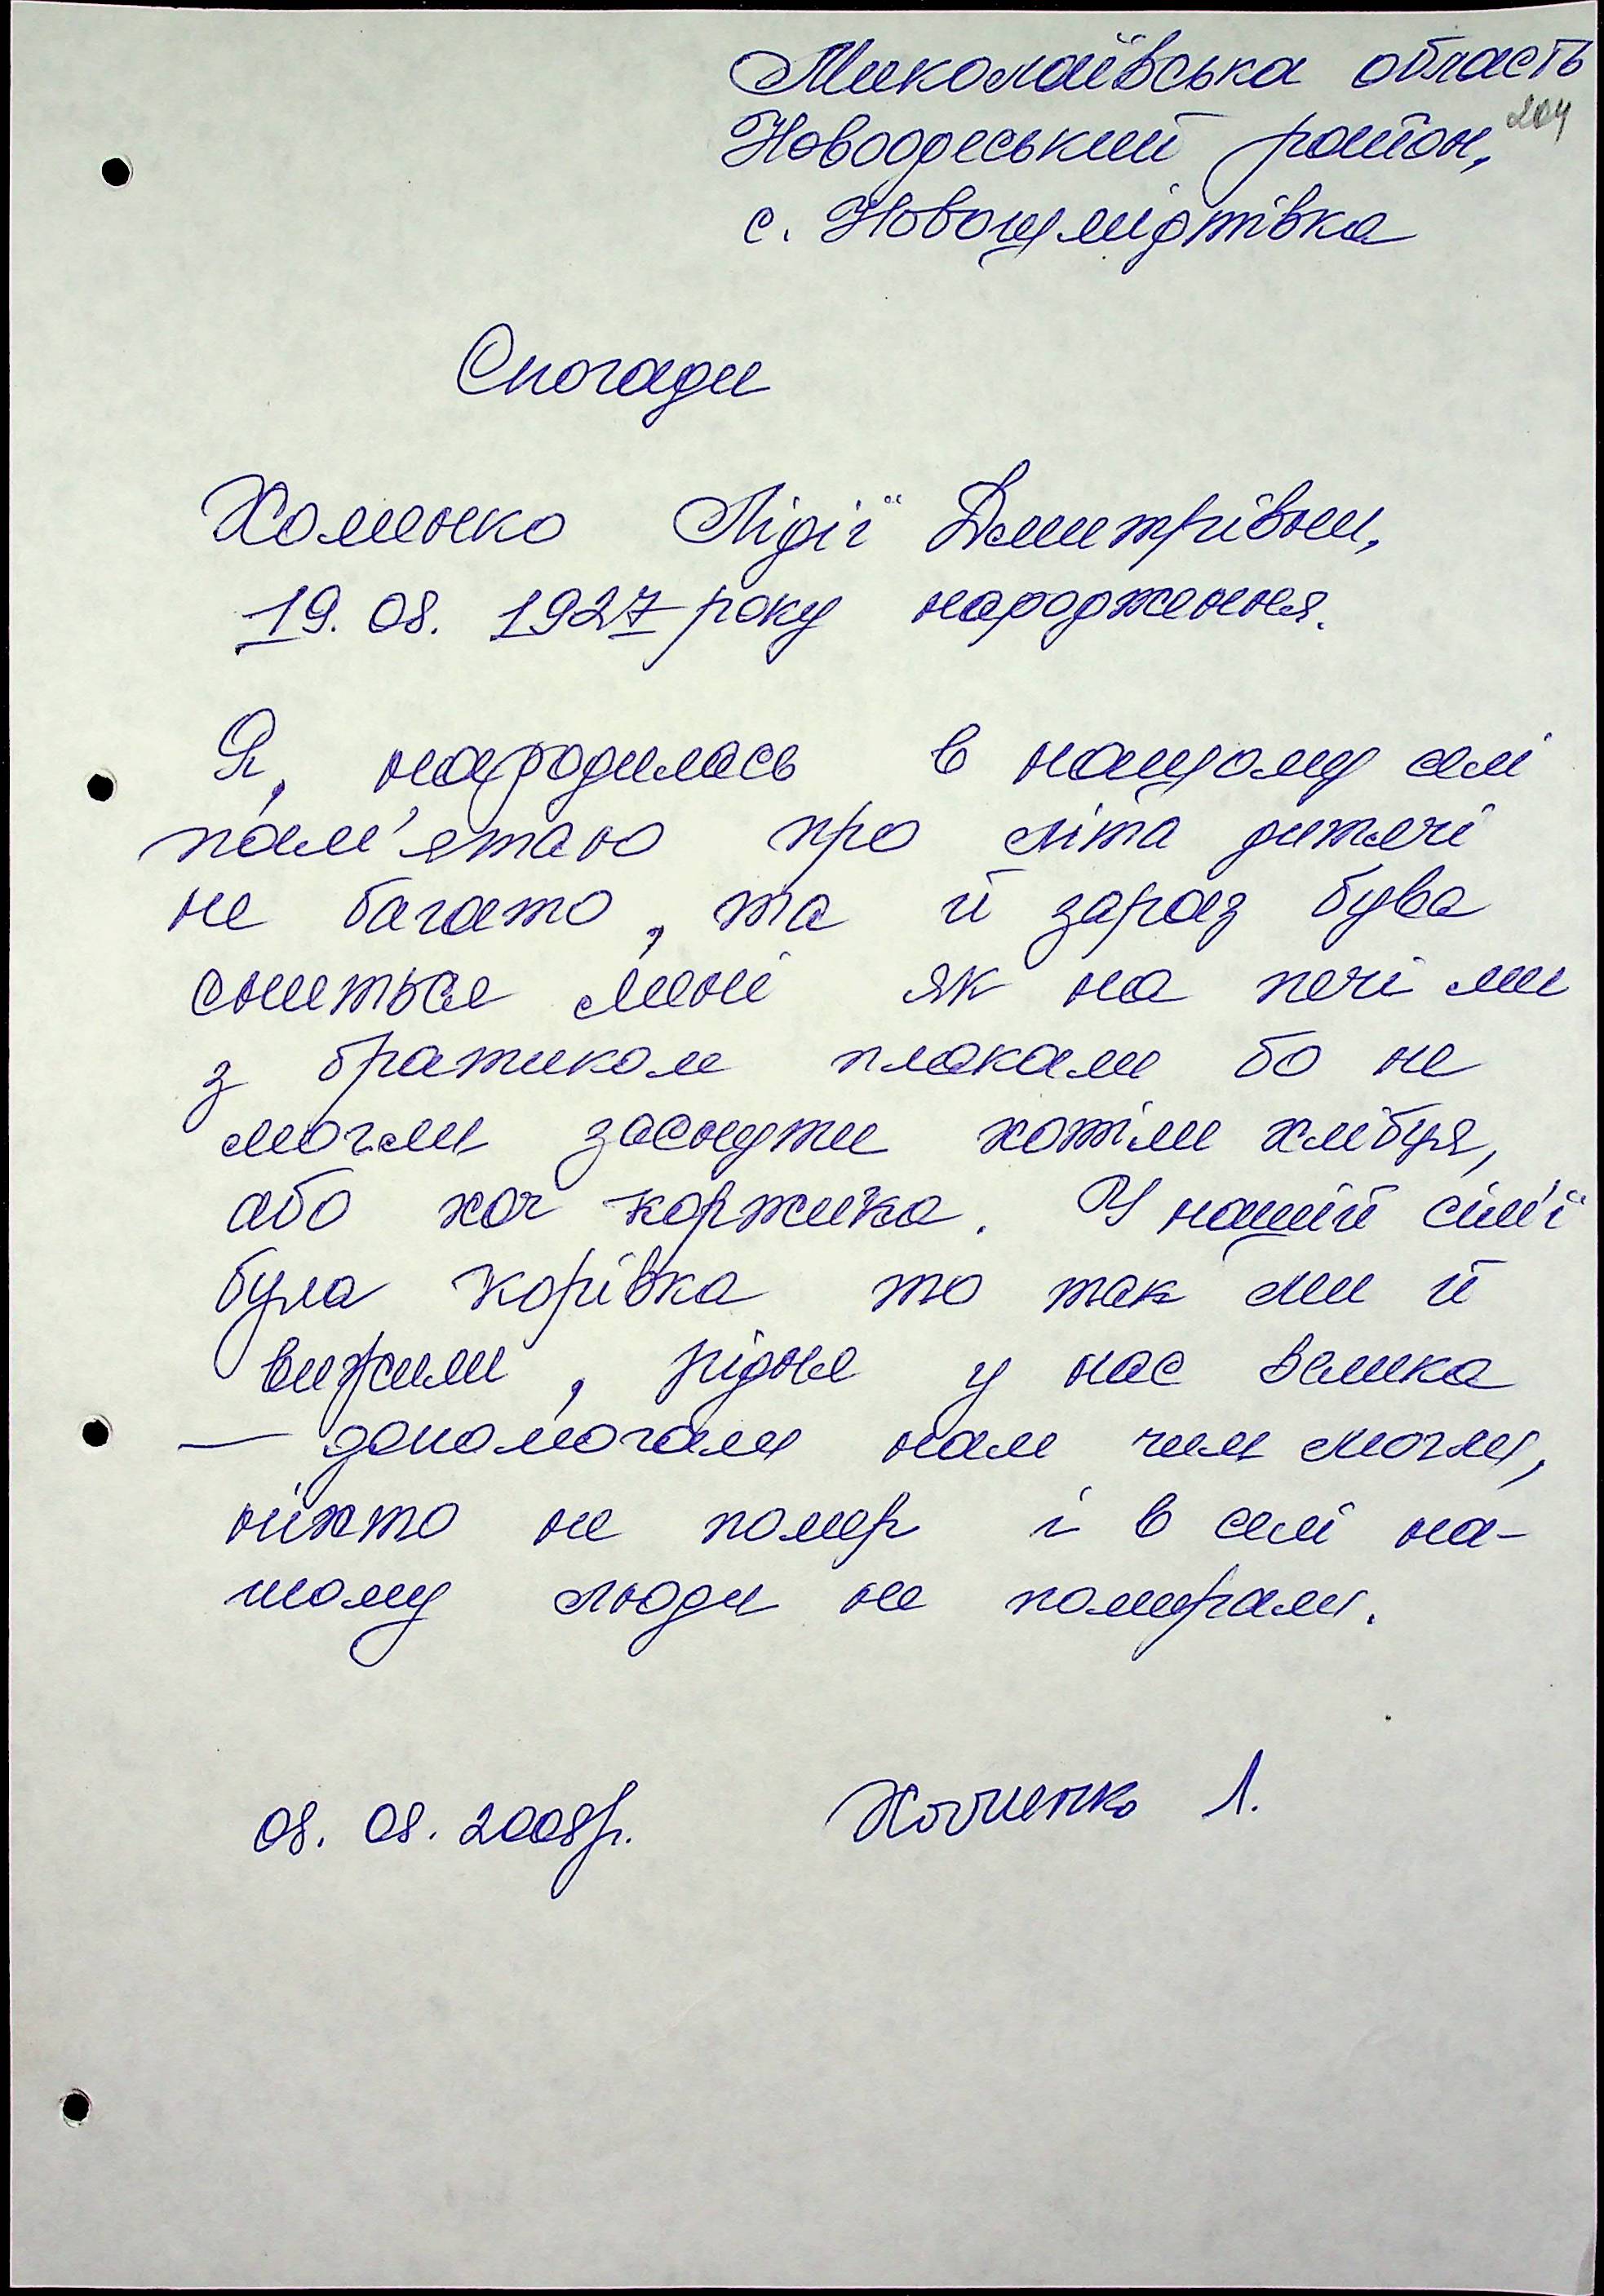 Миколаївська область
204
Новоодеський район,
с. Новошмідтівка
Спогади
Хоменко Лідії Дмитрівни,
19. 08. 1927 року народження.
Я, народилась в нашому селі
пам'ятаю про літа дитячі
не багато, та й зараз бува
сниться мені як на печі ми
з братиком плакали бо не
могли заснути хотіли хлібця,
або хоч коржика. У нашій сім'ї
була корівка то так ми й
вижили, рідня у нас велика
— допомогали нам чим могли,
ніхто не помер і в селі на-
шому люди не помирали.
08. 08. 2008р. Хоменко Л.